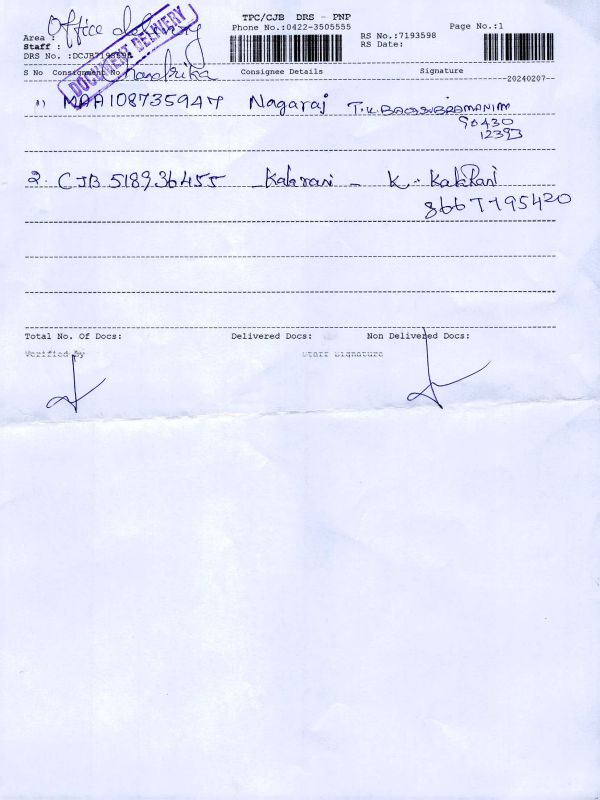 TPC/CJB DRS - PNP
Phone No.:0422-3505555
Page No.:1
Office delivery
Area :
RS No.:7193598
Staff :
RS Date:
DRS No. :DCJB7193598
DOCUMENT DELIVERY
S No Consignment No Consignee Details Signature
20240207
1) MAA108735947 Nagaraj T.K.BALASUBRAMANIAM
90430
12393
2. CJB 518936455 - - K.
8667795420
Total No. Of Docs: Delivered Docs: Non Delivered Docs:
Verified By Staff Signature